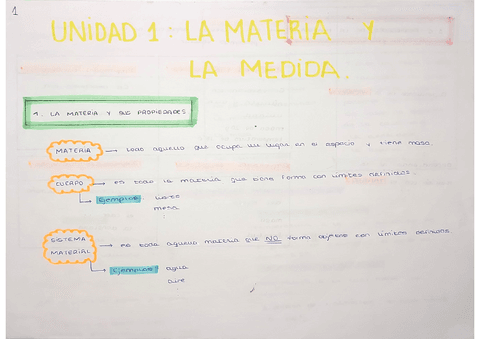 1
UNIDAD 1: LA MATERIA Y
LA MEDIDA.
1. LA MATERIA Y SUS PROPIEDADES
MATERIA → todo aquello que ocupa un lugar en el espacio y tiene masa.
CUERPO → es toda la materia que tiene forma con límites definidos.
Ejemplos: libros
mesa
SISTEMA
MATERIAL → es toda aquella materia que NO forma objetos con límites definidos.
Ejemplos: agua
aire